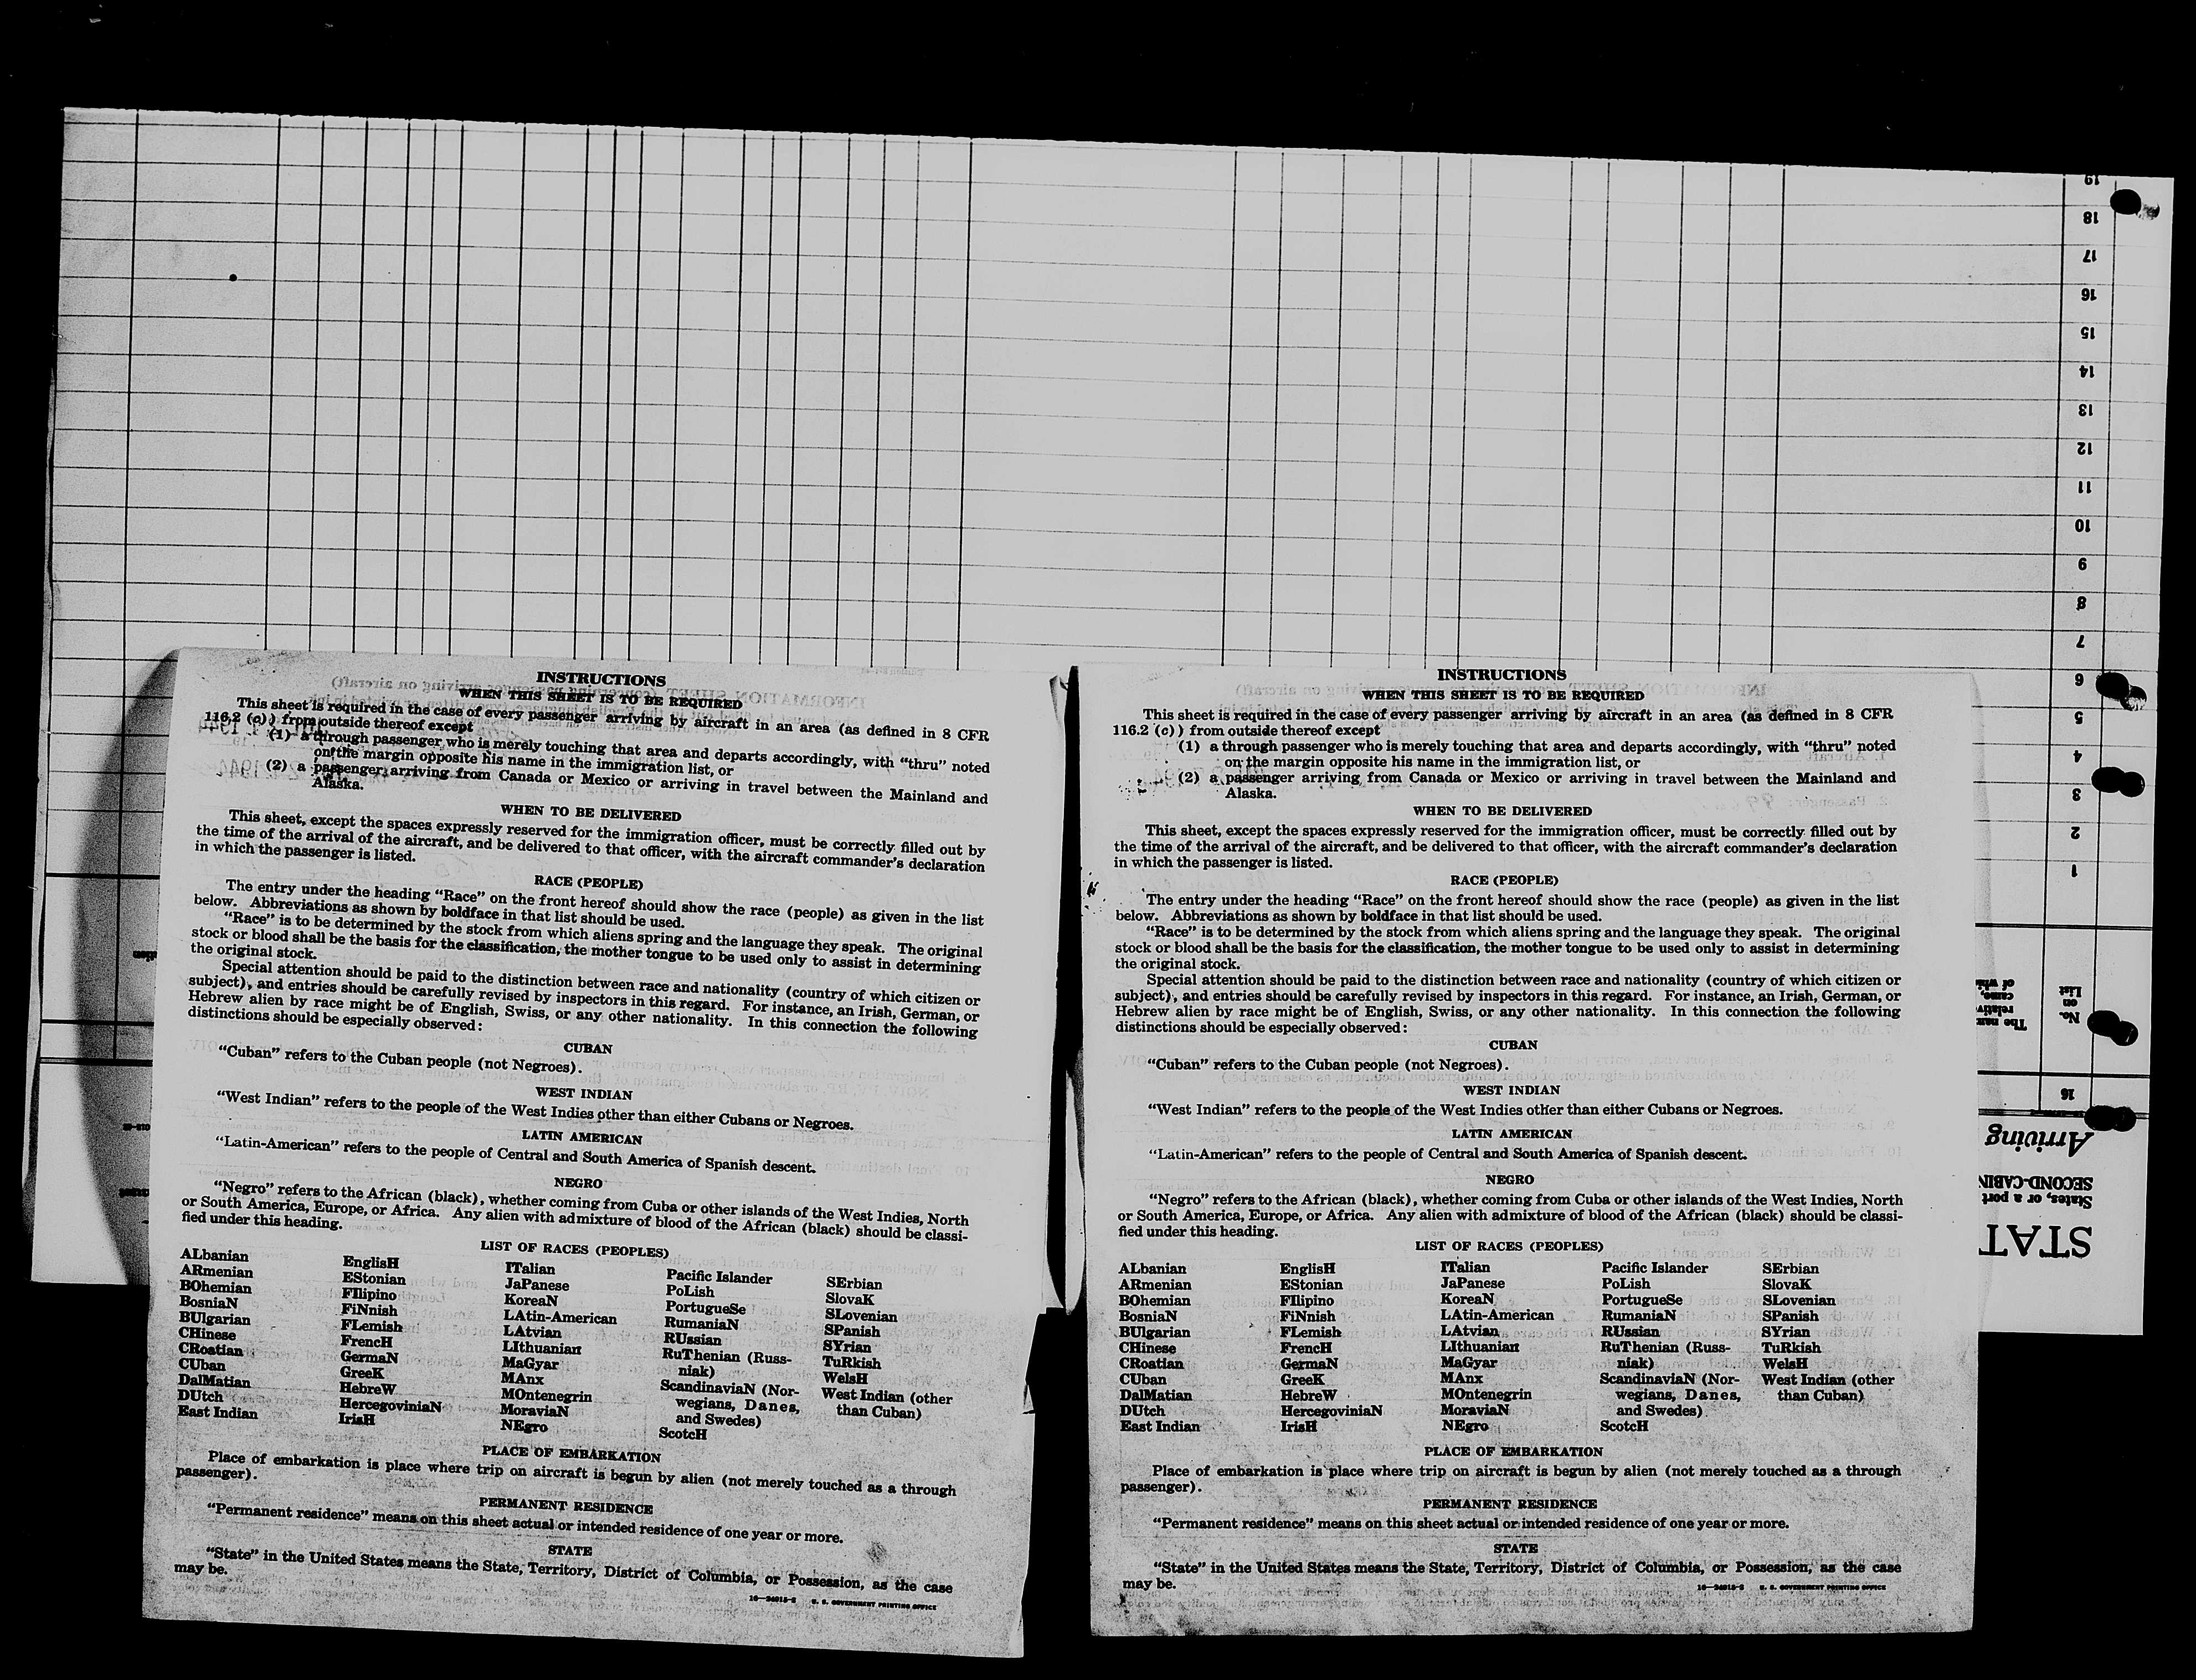 19
18
17
16
15
14
13
12
11
10
9
8
7
6
5
4
3
2
1
No.
on
List
16
Arriving
States, or a port
STAT
INSTRUCTIONS
WHEN THIS SHEET IS TO BE REQUIRED
This sheet is required in the case of every passenger arriving by aircraft in an area (as defined in 8 CFR
116.2 (c)) from outside thereof except
(1) a through passenger who is merely touching that area and departs accordingly, with "thru" noted
on the margin opposite his name in the immigration list, or
(2) a passenger arriving from Canada or Mexico or arriving in travel between the Mainland and
Alaska.
WHEN TO BE DELIVERED
This sheet, except the spaces expressly reserved for the immigration officer, must be correctly filled out by
the time of the arrival of the aircraft, and be delivered to that officer, with the aircraft commander's declaration
in which the passenger is listed.
RACE (PEOPLE)
The entry under the heading "Race" on the front hereof should show the race (people) as given in the list
below. Abbreviations as shown by boldface in that list should be used.
"Race" is to be determined by the stock from which aliens spring and the language they speak. The original
stock or blood shall be the basis for the classification, the mother tongue to be used only to assist in determining
the original stock.
Special attention should be paid to the distinction between race and nationality (country of which citizen or
subject), and entries should be carefully revised by inspectors in this regard. For instance, an Irish, German, or
Hebrew alien by race might be of English, Swiss, or any other nationality. In this connection the following
distinctions should be especially observed:
CUBAN
"Cuban" refers to the Cuban people (not Negroes).
WEST INDIAN
"West Indian" refers to the people of the West Indies other than either Cubans or Negroes.
LATIN AMERICAN
"Latin-American" refers to the people of Central and South America of Spanish descent.
NEGRO
"Negro" refers to the African (black), whether coming from Cuba or other islands of the West Indies, North
or South America, Europe, or Africa. Any alien with admixture of blood of the African (black) should be classi-
fied under this heading.
LIST OF RACES (PEOPLES)
ALbanian
ARmenian
BOhemian
BosniaN
BUlgarian
CHinese
CRoatian
CUban
DalMatian
DUtch
East Indian
EnglisH
EStonian
FIlipino
FiNnish
FLemish
FrencH
GermaN
GreeK
HebreW
HercegoviniaN
IrisH
ITalian
JaPanese
KoreaN
LAtin-American
LAtvian
LIthuanian
MaGyar
MAnx
MOntenegrin
MoraviaN
NEgro
Pacific Islander
PoLish
PortugueSe
RumaniaN
RUssian
RuThenian (Russ-
niak)
ScandinaviaN (Nor-
wegians, Danes,
and Swedes)
ScotcH
SErbian
SlovaK
SLovenian
SPanish
SYrian
TuRkish
WelsH
West Indian (other
than Cuban)
PLACE OF EMBARKATION
Place of embarkation is place where trip on aircraft is begun by alien (not merely touched as a through
passenger).
PERMANENT RESIDENCE
"Permanent residence" means on this sheet actual or intended residence of one year or more.
STATE
"State" in the United States means the State, Territory, District of Columbia, or Possession, as the case
may be.
U. S. GOVERNMENT PRINTING OFFICE
INSTRUCTIONS
WHEN THIS SHEET IS TO BE REQUIRED
This sheet is required in the case of every passenger arriving by aircraft in an area (as defined in 8 CFR
116.2 (c)) from outside thereof except
(1) a through passenger who is merely touching that area and departs accordingly, with "thru" noted
on the margin opposite his name in the immigration list, or
(2) a passenger arriving from Canada or Mexico or arriving in travel between the Mainland and
Alaska.
WHEN TO BE DELIVERED
This sheet, except the spaces expressly reserved for the immigration officer, must be correctly filled out by
the time of the arrival of the aircraft, and be delivered to that officer, with the aircraft commander's declaration
in which the passenger is listed.
RACE (PEOPLE)
The entry under the heading "Race" on the front hereof should show the race (people) as given in the list
below. Abbreviations as shown by boldface in that list should be used.
"Race" is to be determined by the stock from which aliens spring and the language they speak. The original
stock or blood shall be the basis for the classification, the mother tongue to be used only to assist in determining
the original stock.
Special attention should be paid to the distinction between race and nationality (country of which citizen or
subject), and entries should be carefully revised by inspectors in this regard. For instance, an Irish, German, or
Hebrew alien by race might be of English, Swiss, or any other nationality. In this connection the following
distinctions should be especially observed:
CUBAN
"Cuban" refers to the Cuban people (not Negroes).
WEST INDIAN
"West Indian" refers to the people of the West Indies other than either Cubans or Negroes.
LATIN AMERICAN
"Latin-American" refers to the people of Central and South America of Spanish descent.
NEGRO
"Negro" refers to the African (black), whether coming from Cuba or other islands of the West Indies, North
or South America, Europe, or Africa. Any alien with admixture of blood of the African (black) should be classi-
fied under this heading.
LIST OF RACES (PEOPLES)
ALbanian
ARmenian
BOhemian
BosniaN
BUlgarian
CHinese
CRoatian
CUban
DalMatian
DUtch
East Indian
EnglisH
EStonian
FIlipino
FiNnish
FLemish
FrencH
GermaN
GreeK
HebreW
HercegoviniaN
IrisH
ITalian
JaPanese
KoreaN
LAtin-American
LAtvian
LIthuanian
MaGyar
MAnx
MOntenegrin
MoraviaN
NEgro
Pacific Islander
PoLish
PortugueSe
RumaniaN
RUssian
RuThenian (Russ-
niak)
ScandinaviaN (Nor-
wegians, Danes,
and Swedes)
ScotcH
SErbian
SlovaK
SLovenian
SPanish
SYrian
TuRkish
WelsH
West Indian (other
than Cuban)
PLACE OF EMBARKATION
Place of embarkation is place where trip on aircraft is begun by alien (not merely touched as a through
passenger).
PERMANENT RESIDENCE
"Permanent residence" means on this sheet actual or intended residence of one year or more.
STATE
"State" in the United States means the State, Territory, District of Columbia, or Possession, as the case
may be.
U. S. GOVERNMENT PRINTING OFFICE